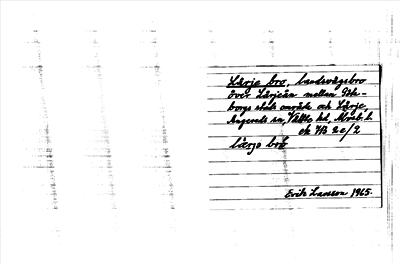 Lärje bro, landsvägsbro
över Lärjeån mellan Göte-
borgs stads område och Lärje,
Angereds sn, Vättle hd, Älvsb. l.
ek 7B 2e/2
lærjə brö
Erik Larsson 1965.